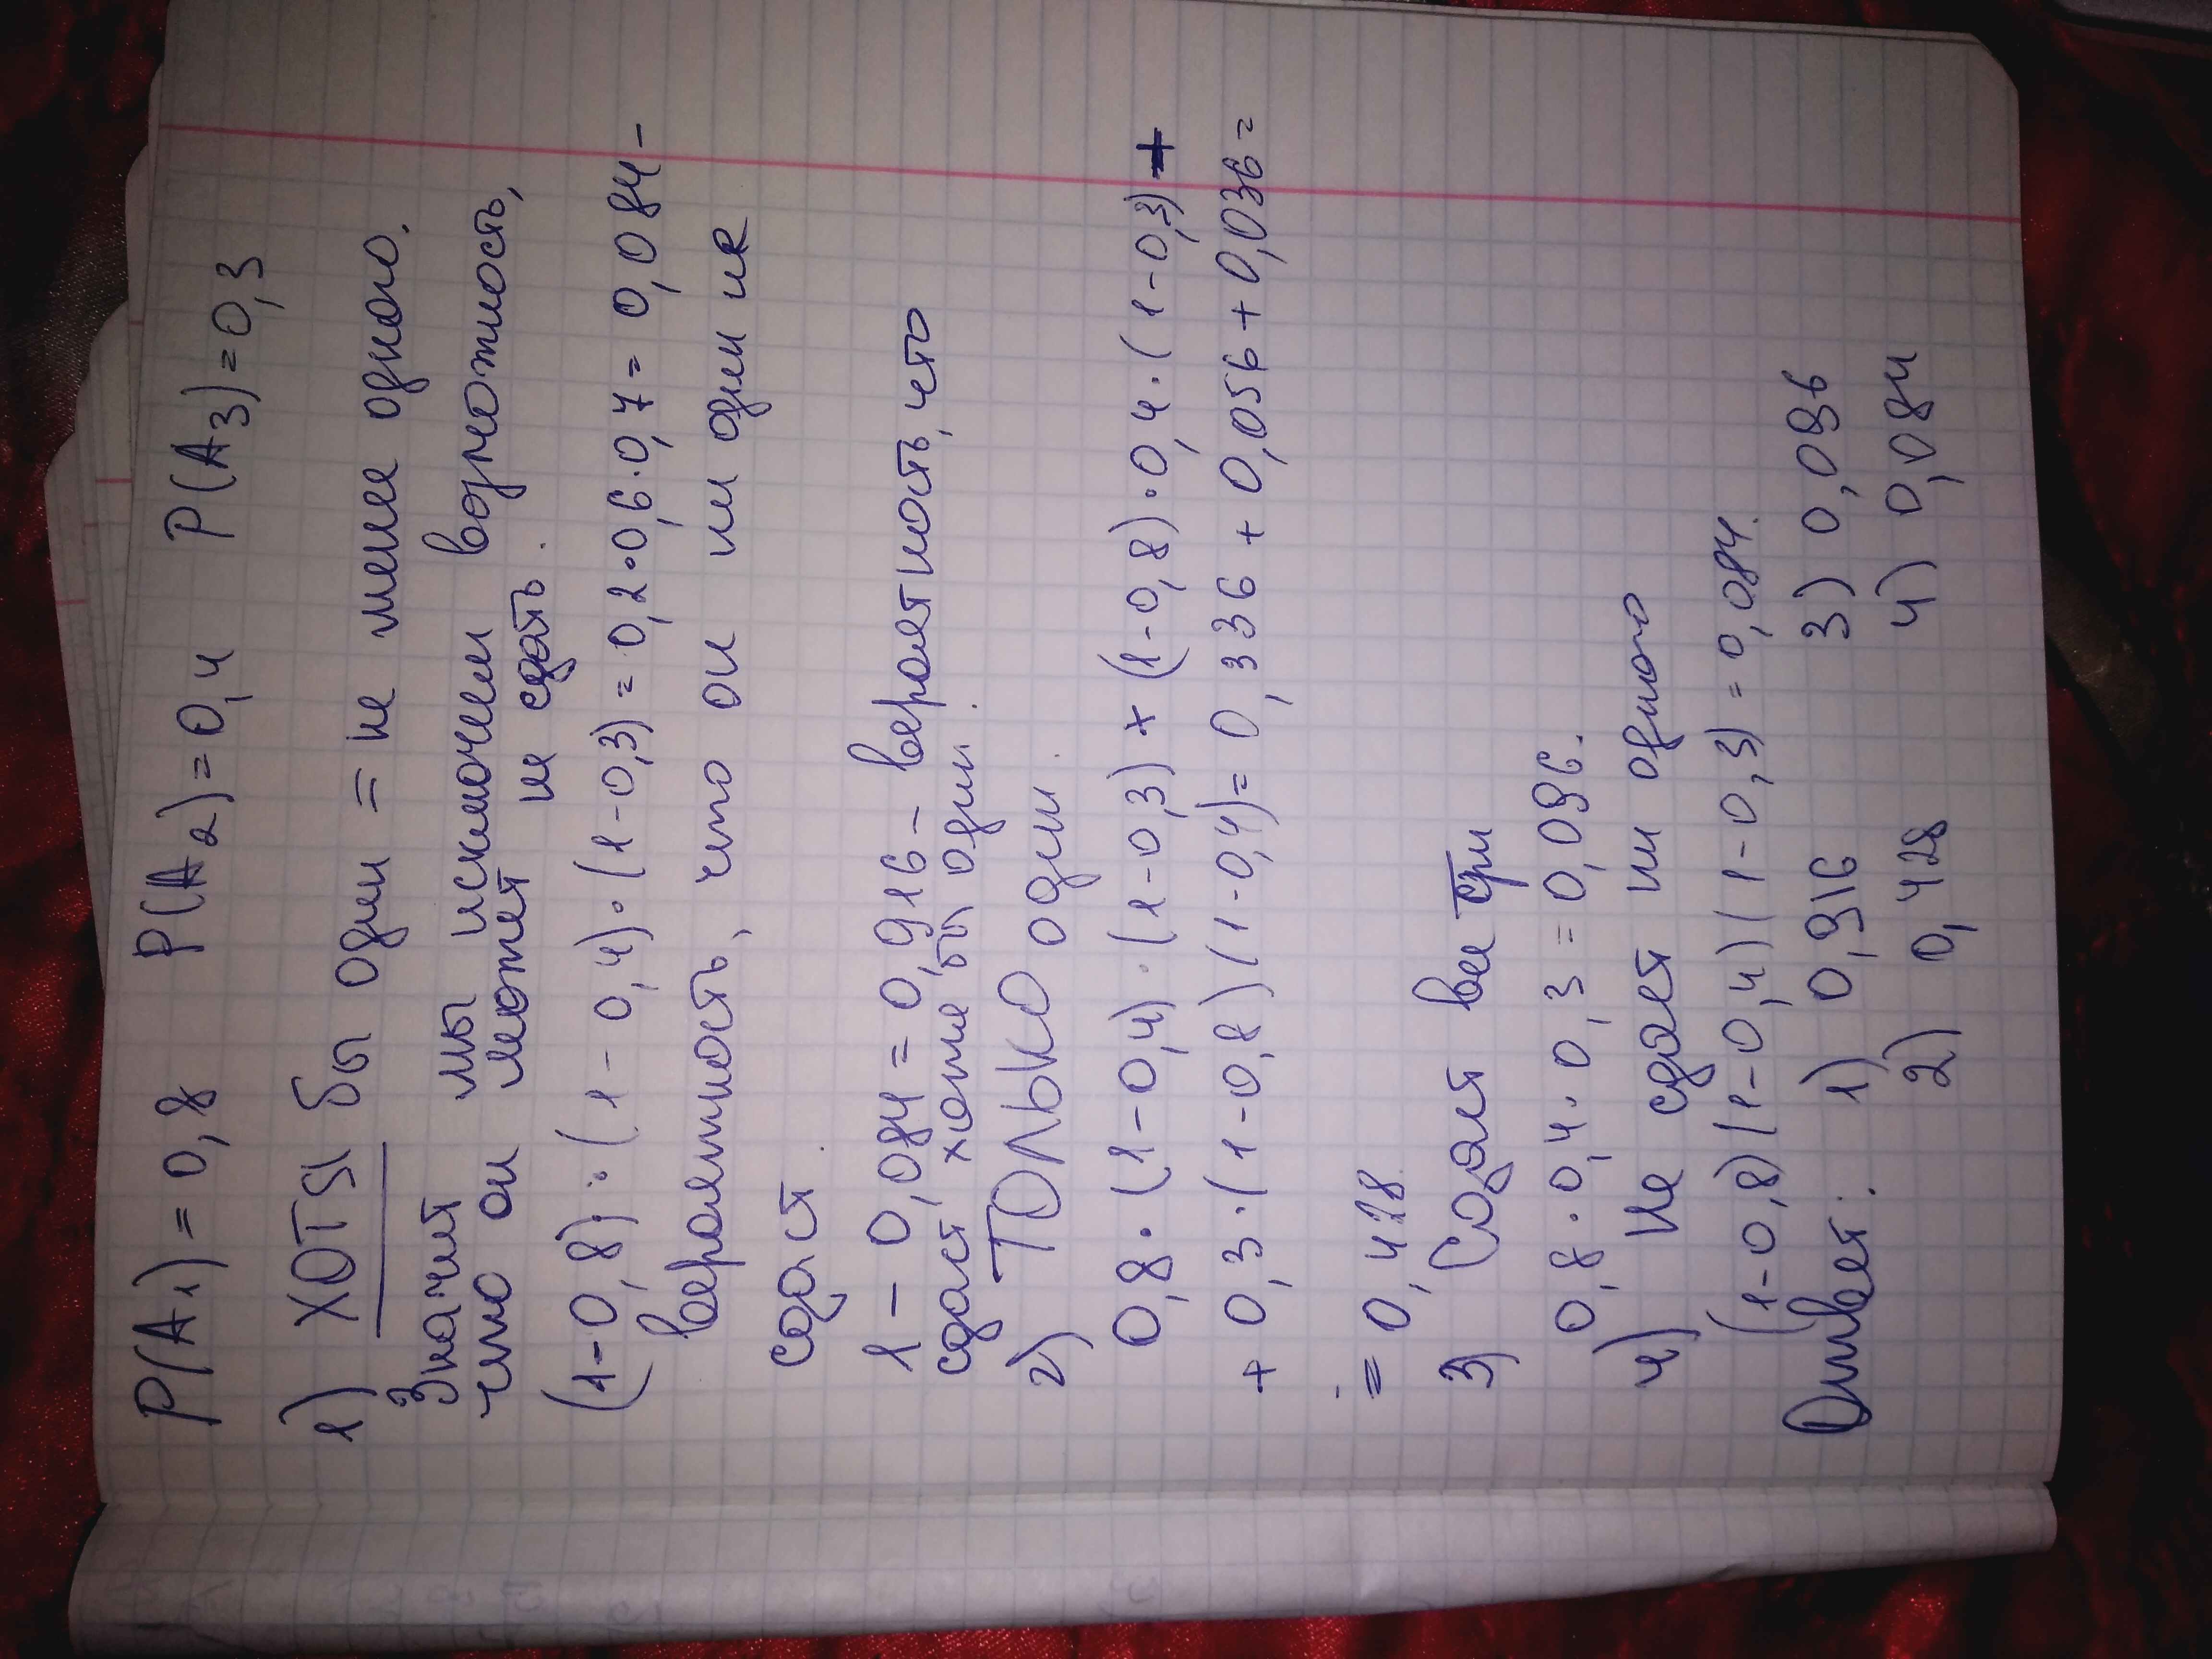 P(A1)=0,8 P(A2)=0,4 P(A3)=0,3
1) ХОТЯ бы один = не менее одного.
Значит мы исключаем возможность,
что он может не сдать.
(1-0,8)·(1-0,4)·(1-0,3)=0,2·0,6·0,7=0,084-
вероятность, что он ни один не
сдаст.
1-0,084=0,916- вероятность, что
сдаст хотя бы один.
2) ТОЛЬКО один.
0,8·(1-0,4)·(1-0,3)+(1-0,8)·0,4·(1-0,3)+
+0,3·(1-0,8)(1-0,4)=0,336+0,056+0,036=
=0,428.
3) Сдаст все три
0,8·0,4·0,3=0,096.
4) Не сдаст ни одного
(1-0,8)(1-0,4)(1-0,3)=0,084.
Ответ: 1) 0,916 3) 0,096
2) 0,428 4) 0,084